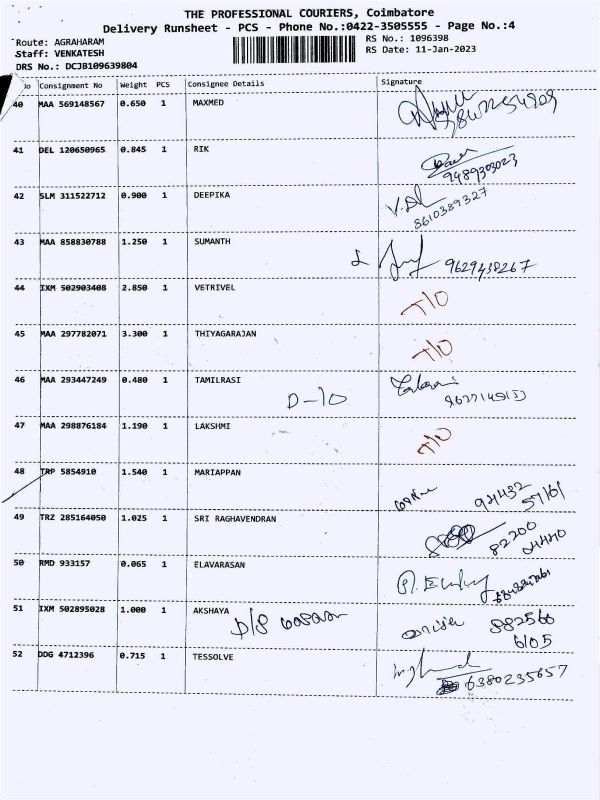 THE PROFESSIONAL COURIERS, Coimbatore
Delivery Runsheet - PCS - Phone No.:0422-3505555 - Page No.:4
Route: AGRAHARAM
RS No.: 1096398
Staff: VENKATESH
RS Date: 11-Jan-2023
DRS No.: DCJB109639804
No Consignment No Weight PCS Consignee Details Signature
40 MAA 569148567 0.650 1 MAXMED
41 DEL 120650965 0.845 1 RIK
9489303023
42 SLM 311522712 0.900 1 DEEPIKA
8610389327
43 MAA 858830788 1.250 1 SUMANTH
9629438267
44 IXM 502903408 2.850 1 VETRIVEL T/O
45 MAA 297782071 3.300 1 THIYAGARAJAN T/O
46 MAA 293447249 0.480 1 TAMILRASI
D-10
47 MAA 298876184 1.190 1 LAKSHMI T/O
48 TRP 5854910 1.540 1 MARIAPPAN
94432
57161
49 TRZ 285164050 1.025 1 SRI RAGHAVENDRAN
82200
50 RMD 933157 0.065 1 ELAVARASAN
51 IXM 502895028 1.000 1 AKSHAYA
D/S
882566
6105
52 DDG 4712396 0.715 1 TESSOLVE
6380235657